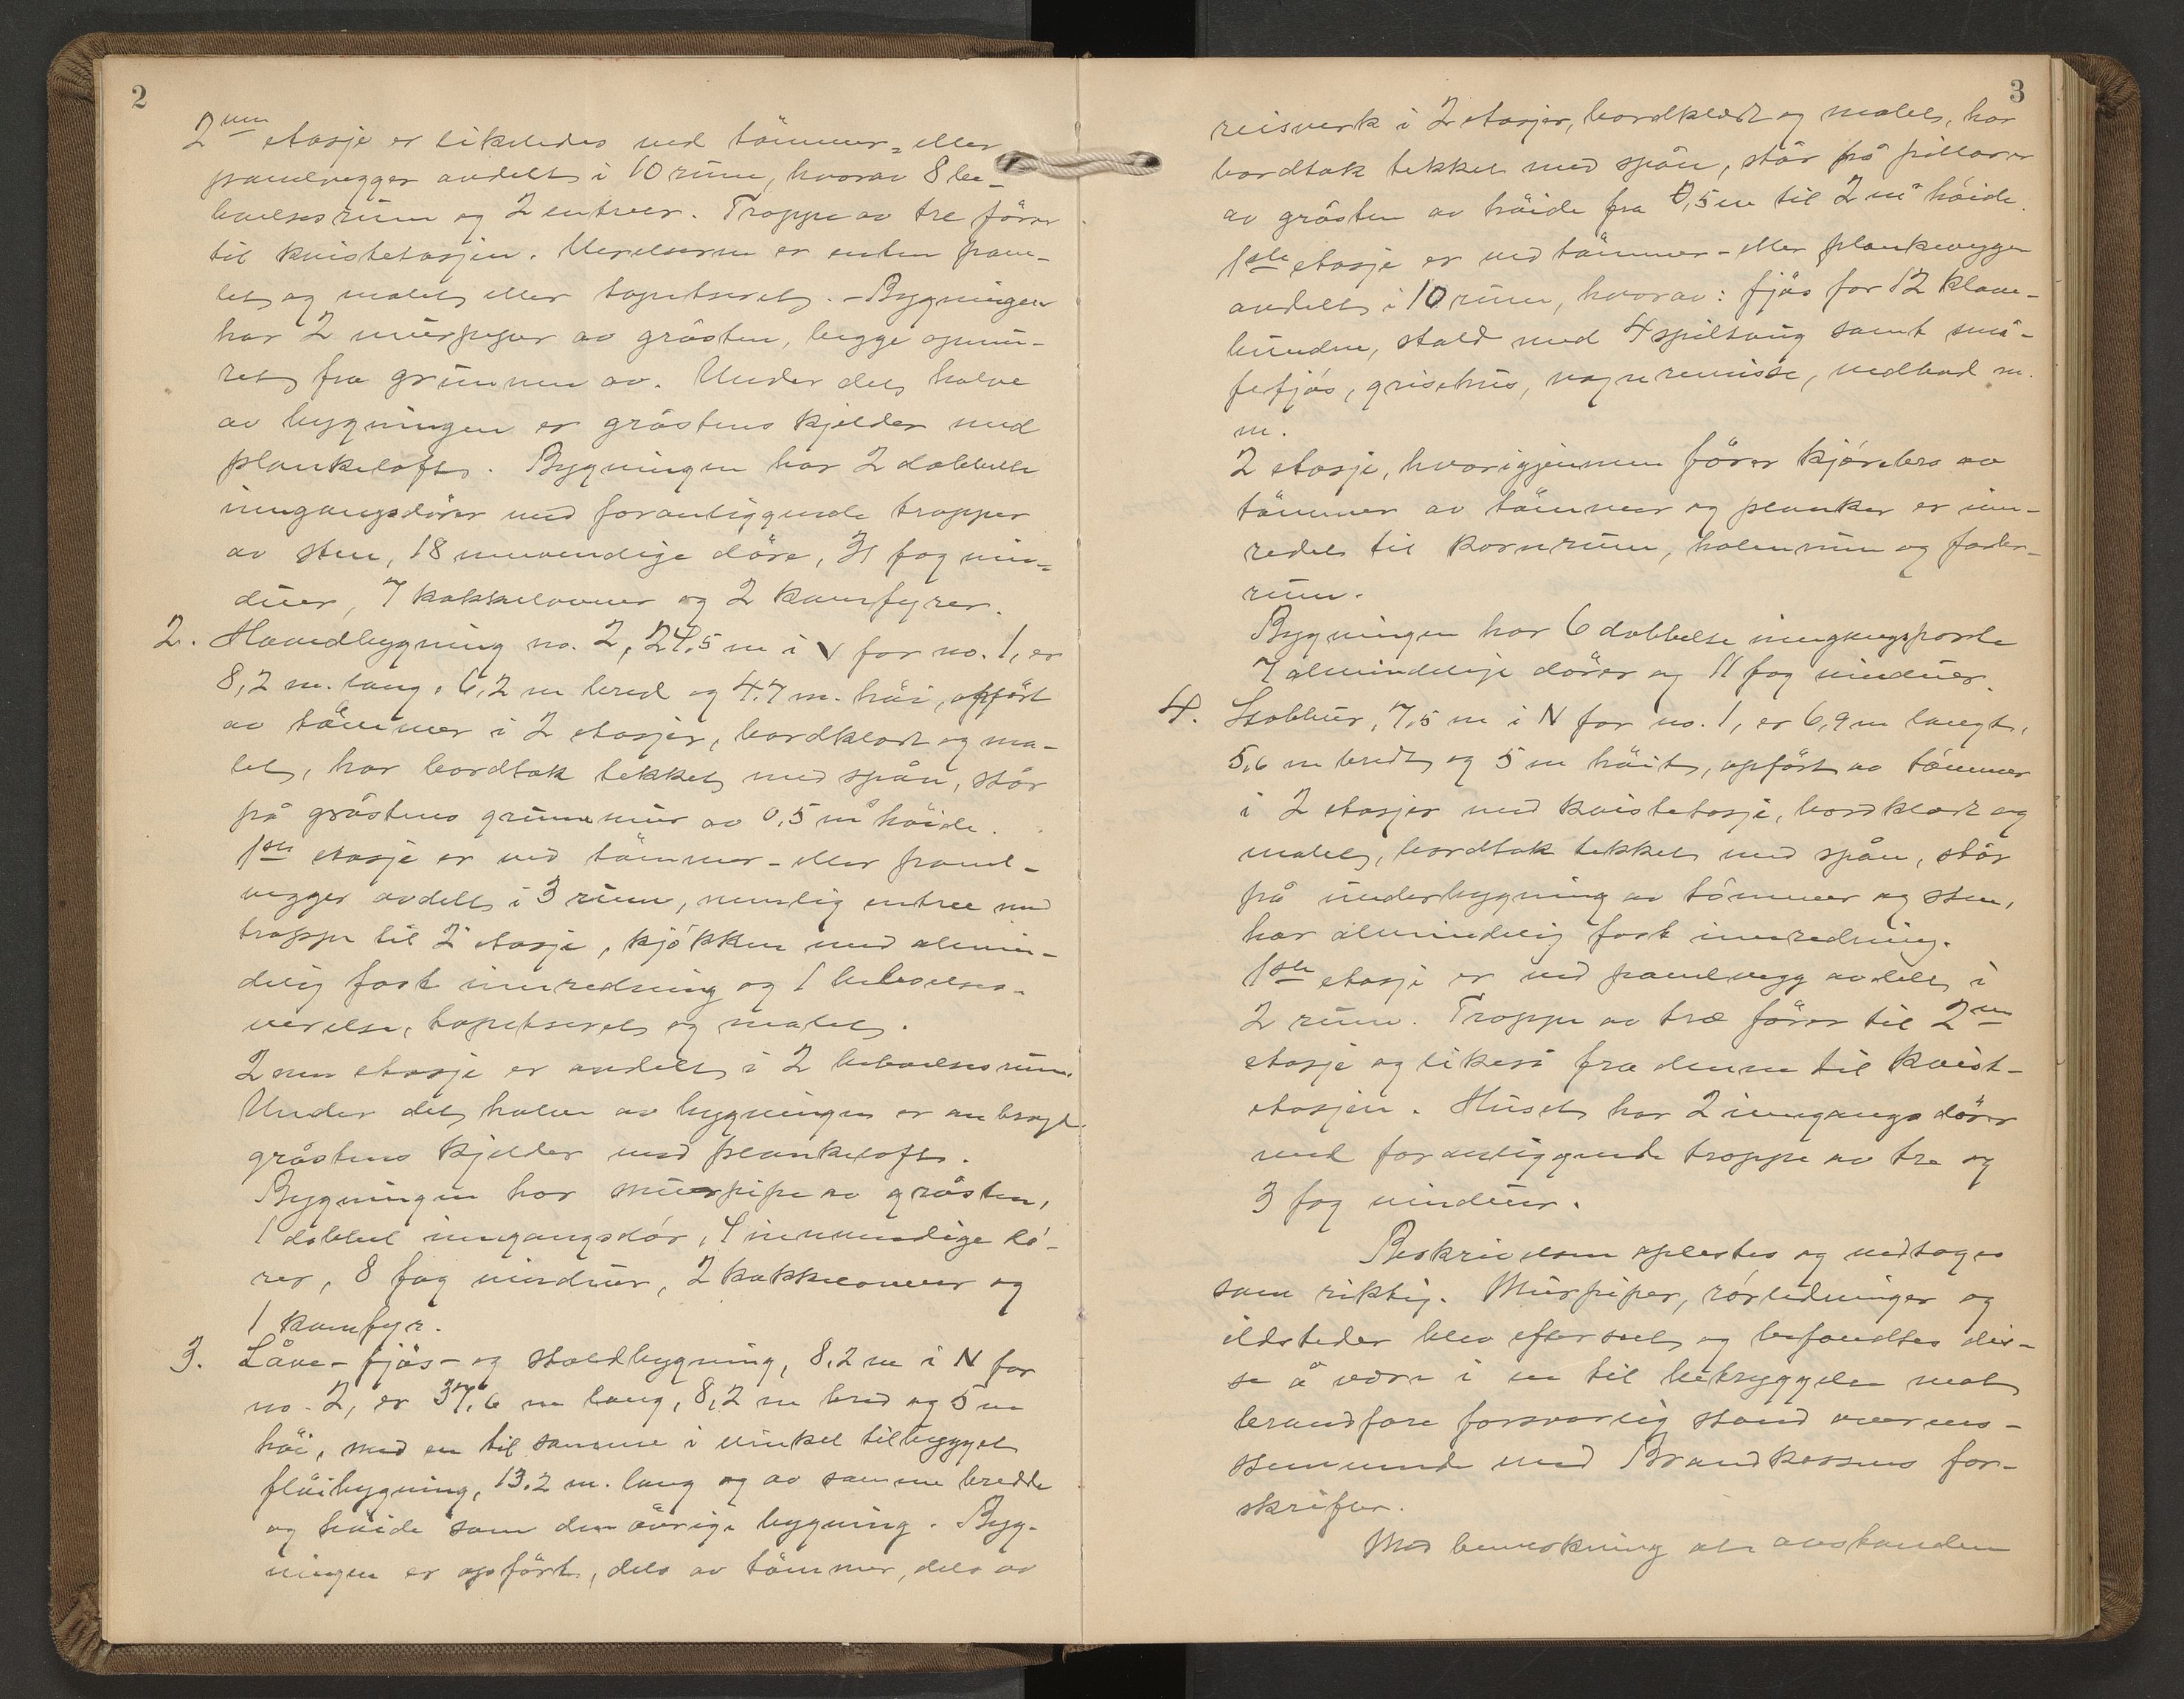 2
2nen etasje er likeledes ved tömmer- eller
panelvegger avdelt i 10 rum, hvorav 8 be-
boelsesrum og 2 entreer. Trappe av tre förer
til kvistetasjen. Verelserne er enten pane-
let og malet eller tapetseret. - Bygningen
har 2 murpiper av gråsten, begge opmu-
ret fra grunnen av. Under det halve
av bygningen er gråstens kjelder med
plankeloft. Bygningen har 2 dobbelte
inngangsdörer med foranliggende trapper
av sten, 18 innvendige döre, 31 fag vin-
duer, 7 kakkelovner og 2 komfyrer.
2. Hovedbygning no. 2, 24,5 m i V for no. 1, er
8,2 m. lang, 6,2 m bred og 4,7 m. höi, opfört
av tömmer i 2 etasjer, bordklædt og ma-
let, har bordtak tekket med spån, står
på gråstens grunnmur av 0,5 m höide.
1ste etasje er ved tömmer- eller panel-
vegger avdelt i 3 rum, nemlig entree med
trappe til 2 etasje, kjökken med almin-
delig fast innredning og 1 beboelses-
verelse, tapetseret og malet.
2nen etasje er avdelt i 2 beboelsesrum.
Under det halve av bygningen er anbragt
gråstens kjelder med plankeloft.
Bygningen har murpipe av gråsten,
1 dobbel inngangsdör, 4 innvendige dö-
rer, 8 fag vinduer, 2 kakkelovner og
1 komfyr.
3. Låve- fjös- og staldbygning, 8,2 m i N for
no. 2, er 37,6 m lang, 8,2 m bred og 5 m
höi, med en til samme i vinkel tilbygget
flöibygning, 13,2 m. lang og av samme bredde
og höide som den övrige bygning. Byg-
ningen er opfört, dels av tömmer, dels av
3
reisverk i 2 etasjer, bordklædt og malet, har
bordtak tekket med spån, står på pillarer
av gråsten av höide fra 0,5 m til 2 m höide.
1ste etasje er ved tömmer- eller plankevegger
avdelt i 10 rum, hvorav: fjös for 12 klave-
bundne, stald med 4 spiltaug samt små-
fefjös, grisehus, vognremisse, vedbod m.
m.
2 etasje, hvorigjennem förer kjörebro av
tömmer av tömmer og planker er inn-
redet til kornrum, halmrum og foder-
rum.
Bygningen har 6 dobbelte inngangsporte
7 almindelige dörer og 11 fag vinduer.
4. Stabbur, 7,5 m i N for no. 1, er 6,9 m langt,
5,6 m bredt og 5 m höit, opfört av tömmer
i 2 etasjer med kvistetasje, bordklædt og
malet, bordtak tekket med spån, står
på underbygning av tömmer og sten,
har almindelig fast innredning.
1ste etasje er ved panelvegg avdelt i
2 rum. Trappe av træ förer til 2nen
etasje og likeså fra denne til kvist-
etasjen. Huset har 2 inngangsdörer
med foranliggende trappe av tre og
3 fag vinduer.
Beskrivelsen oplestes og vedtoges
som riktig. Murpiper, rörledninger og
ildsteder blev efterset og befandtes dis-
se å være i en til betryggelse mot
brandfare forsvarlig stand overens-
stemmende med Brandkassens for-
skrifter.
Med bemerkning at avstanden